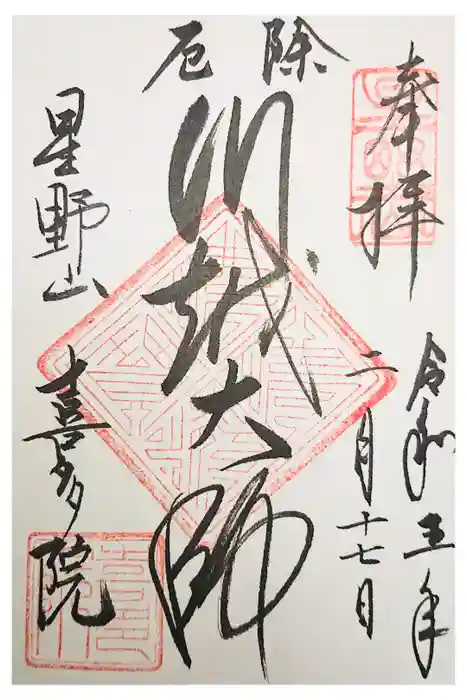 奉拝
令和五年
二月十七日
厄除
川越大師
星野山
喜多院